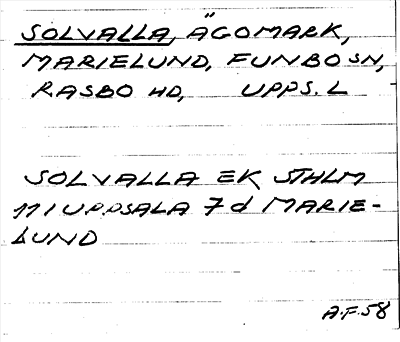 SOLVALLA, ÄGOMARK,
MARIELUND, FUNBO SN,
RASBO HD, UPPS. L
SOLVALLA EK STHLM
11 I UPPSALA 7 d MARIE-
LUND
A.F. 58